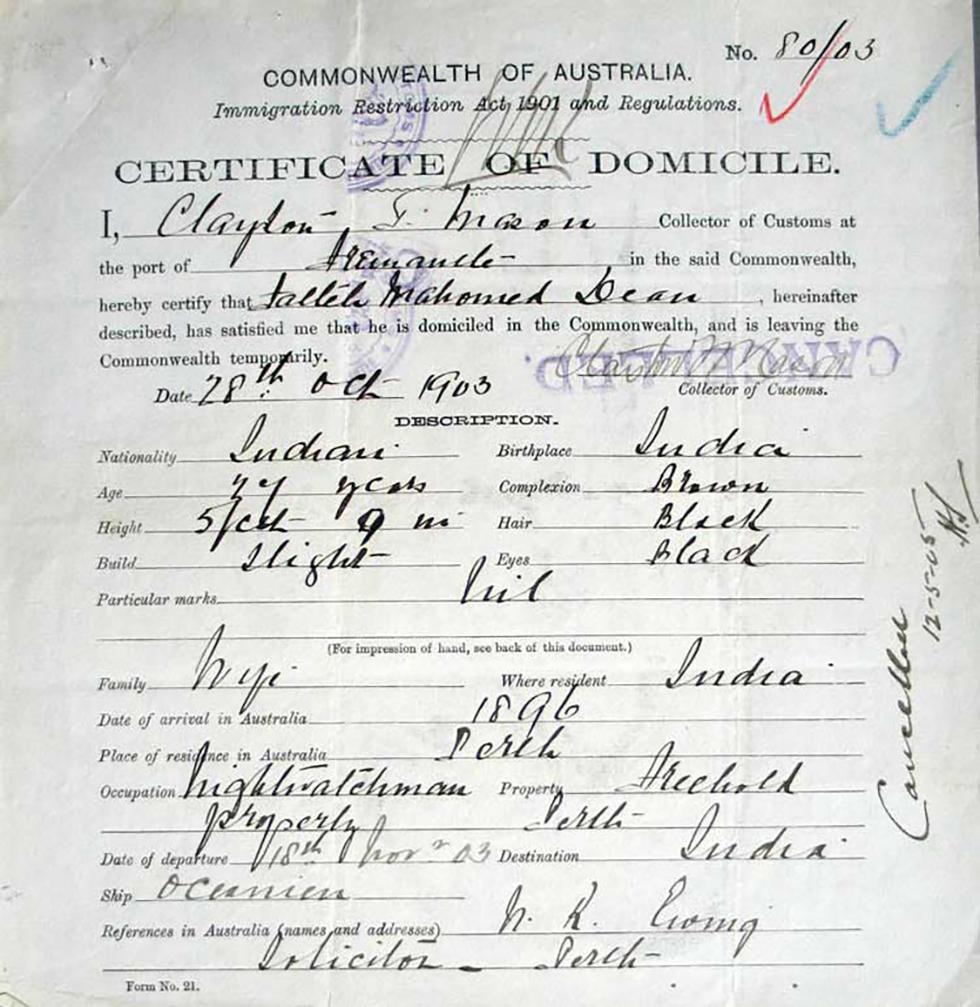 No. 80/03
COMMONWEALTH OF AUSTRALIA.
Immigration Restriction Act, 1901 and Regulations.
CERTIFICATE OF DOMICILE.
I, Clayton T. Mason Collector of Customs at
the port of Fremantle in the said Commonwealth,
hereby certify that Falteh Mahomed Dean, hereinafter
described, has satisfied me that he is domiciled in the Commonwealth, and is leaving the
Commonwealth temporarily.
CANCELLED.
Date 28th Oct 1903 Collector of Customs.
DESCRIPTION.
Nationality Indian Birthplace India
Age years Complexion Brown
Height 5 feet 9 in Hair Black
Build Slight Eyes Black
Particular marks Nil
(For impression of hand, see back of this document.)
Family Wife Where resident India
Date of arrival in Australia 1896
Place of residence in Australia Perth
Occupation Nightwatchman Property Freehold
property Perth
Date of departure 18th Nov 03 Destination India
Ship Oceanien
References in Australia (names and addresses) N. K. Ewing
Solicitor - Perth
Form No. 21.
Cancelled
12-5-05